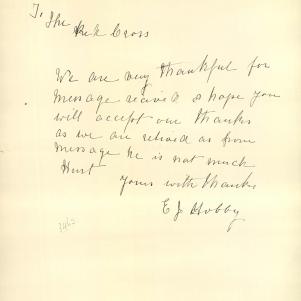 To The
Red Cross
We are very thankful for
message recived & hope you
will accept our thanks
as we are relived as from
message he is not much
Hurt
yours with thanks
E J Hobby
3463